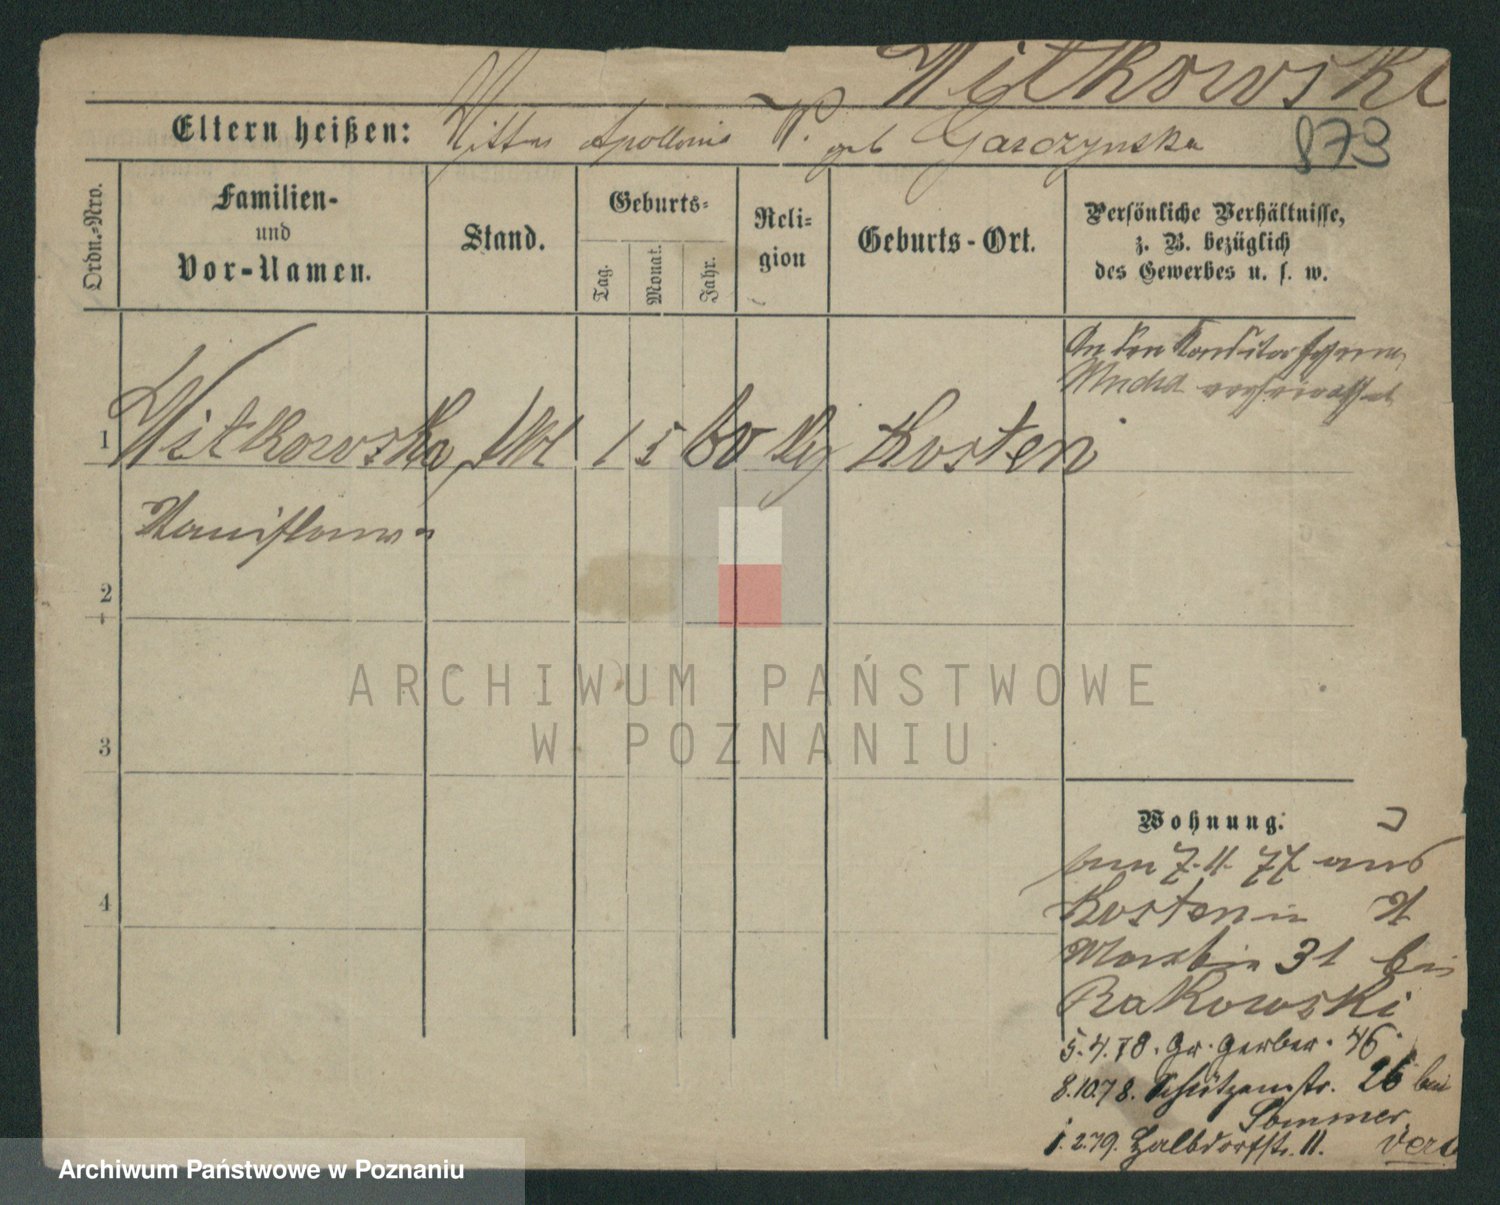 Witkowski
Eltern heißen: Wittwe Apollonia W. geb Garczynska
873
Ordn.-Nro.
Familien-
und
Vor-Namen.
Stand.
Geburts-
Tag.
Monat.
Jahr.
Reli-
gion
Geburts-Ort.
Persönliche Verhältnisse,
z. B. bezüglich
des Gewerbes u. s. w.
An den Konditor
verheirathet
1 Witkowska 1 5 60 Kosten
Stanislawa
2
3
4
ARCHIWUM PAŃSTWOWE
W POZNANIU
Wohnung.
7.11.77 aus
Kosten in St
Martin 31 bei
Rakowski
5.4.78. Gr. Gerber. 46
8.10.78. Schützenstr. 26 bei
Sommer
1.2.79. Halbdorfstr. 11.
Archiwum Państwowe w Poznaniu